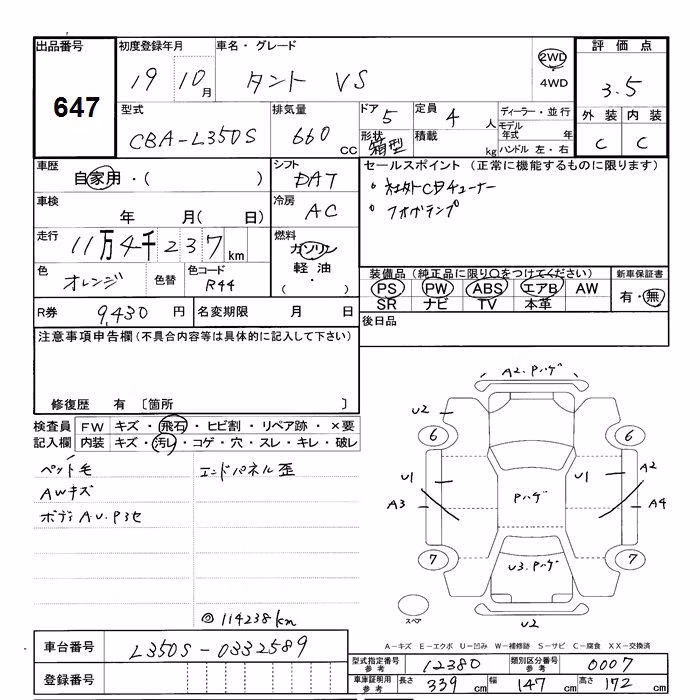 出品番号 初度登録年月 車名・グレード 2WD 評価点
647 19 10月 タント VS 4WD 3.5
型式 排気量 ドア 5 定員 4人 ディーラー・並行 外装 内装
CBA-L350S 660cc 形状 箱型 積載 kg モデル年式 年 C C
ハンドル 左・右
車歴 自家用・( ) シフト DAT セールスポイント (正常に機能するものに限ります)
車検 年 月( 日) 冷房 AC 。社外CDチューナー
走行 11万4千237km 燃料 ガソリン 。フォグランプ
軽油
( ・ )
色 オレンジ 色替 色コード R44 装備品 (純正品に限り○をつけてください) 新車保証書
PS PW ABS エアB AW 有・無
SR ナビ TV 本革
R券 9,430円 名変期限 月 日 後日品
注意事項申告欄 (不具合内容等は具体的に記入して下さい)
修復歴 有 〔箇所 〕
検査員記入欄 FW キズ・飛石・ヒビ割・リペア跡・×要
内装 キズ・汚レ・コゲ・穴・スレ・キレ・破レ
ペット毛 エンドパネル歪
AWキズ
ボディAU.P3セ
◎114238km
A2.Pハゲ
U2
6 6
U1 U1 A2
A3 Pハゲ A4
7 7
U3.Pハゲ
スペア U2
A-キズ E-エクボ U-凹み W-補修跡 S-サビ C-腐食 XX-交換済
車台番号 L350S-0332589
登録番号
型式指定番号 参考 12380 類別区分番号 参考 0007
車庫証明用 参考 長さ 339cm 幅 147cm 高さ 172cm